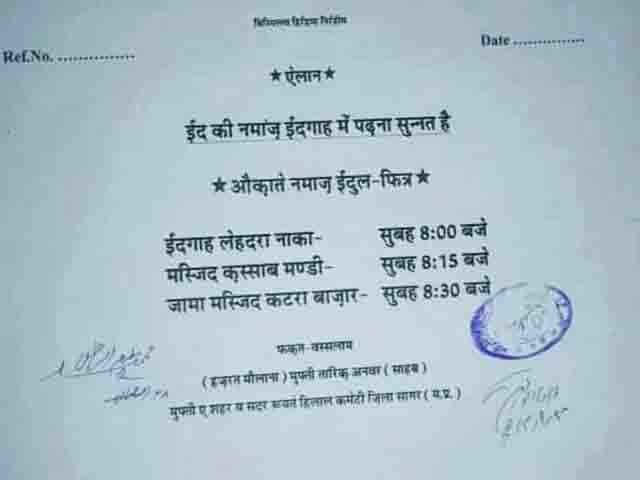 Ref.No. ...............
Date ...............
★ ऐलान ★
ईद की नमाज़ ईदगाह में पढ़ना सुन्नत है
★ औक़ाते नमाज़ ईदुल-फित्र ★
ईदगाह लेहदरा नाका- सुबह 8:00 बजे
मस्जिद क़स्साब मण्डी- सुबह 8:15 बजे
जामा मस्जिद कटरा बाज़ार- सुबह 8:30 बजे
फकत-वस्सलाम
( हज़रत मौलाना ) मुफ्ती तारिक़ अनवर ( साहब )
मुफ्ती ए शहर व सदर रूयते हिलाल कमेटी ज़िला सागर ( म.प्र.)